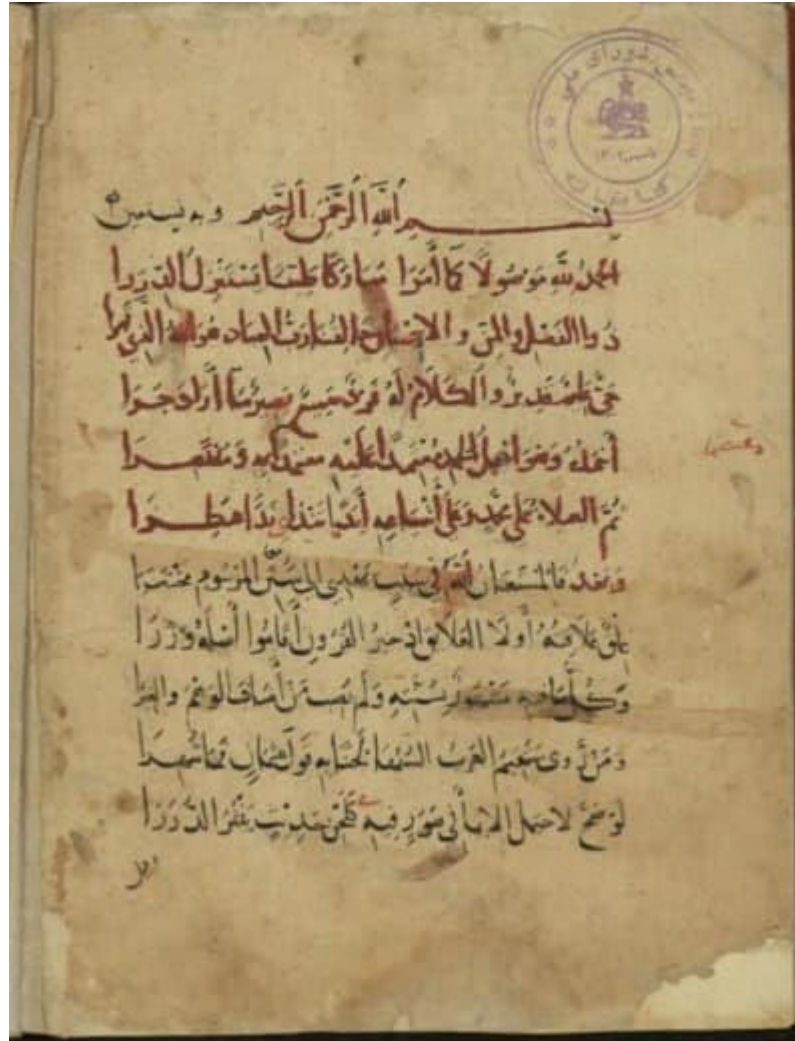 مجلس شورای ملی
تاسیس ۱۳۰۲
بسم الله الرحمن الرحيم وبه نستعين
الحمد لله موصولا كما أمرا مباركا طيبا يستنزل الدررا
ذو الفضل والمن والاحسان خالقنا رب العباد هو الله الذي قهرا
حي عليم قدير والكلام له فرد سميع بصير ما أراد جرا
أحمده وهو اهل الحمد معتمدا عليه معتصما به ومنتصرا
ثم الصلاة على محمد وعلى أشياعه أبدا تندى ندا عطرا
وبعد فالمستعان الله في سبب يهدي الى سنن المرسوم مختصرا
علق علائقه أولى العلائق اذ خير القرون أقاموا أصله وزرا
وكل ما فيه مشهور بسنته ولم يصب من أضاف الوهم والغيرا
ومن روى ستقيم العرب السنها لحنا به قول عثمان فما شهرا
لو صح لاحتمل الايما في صور فيه كلحن حديث ينثر الدررا